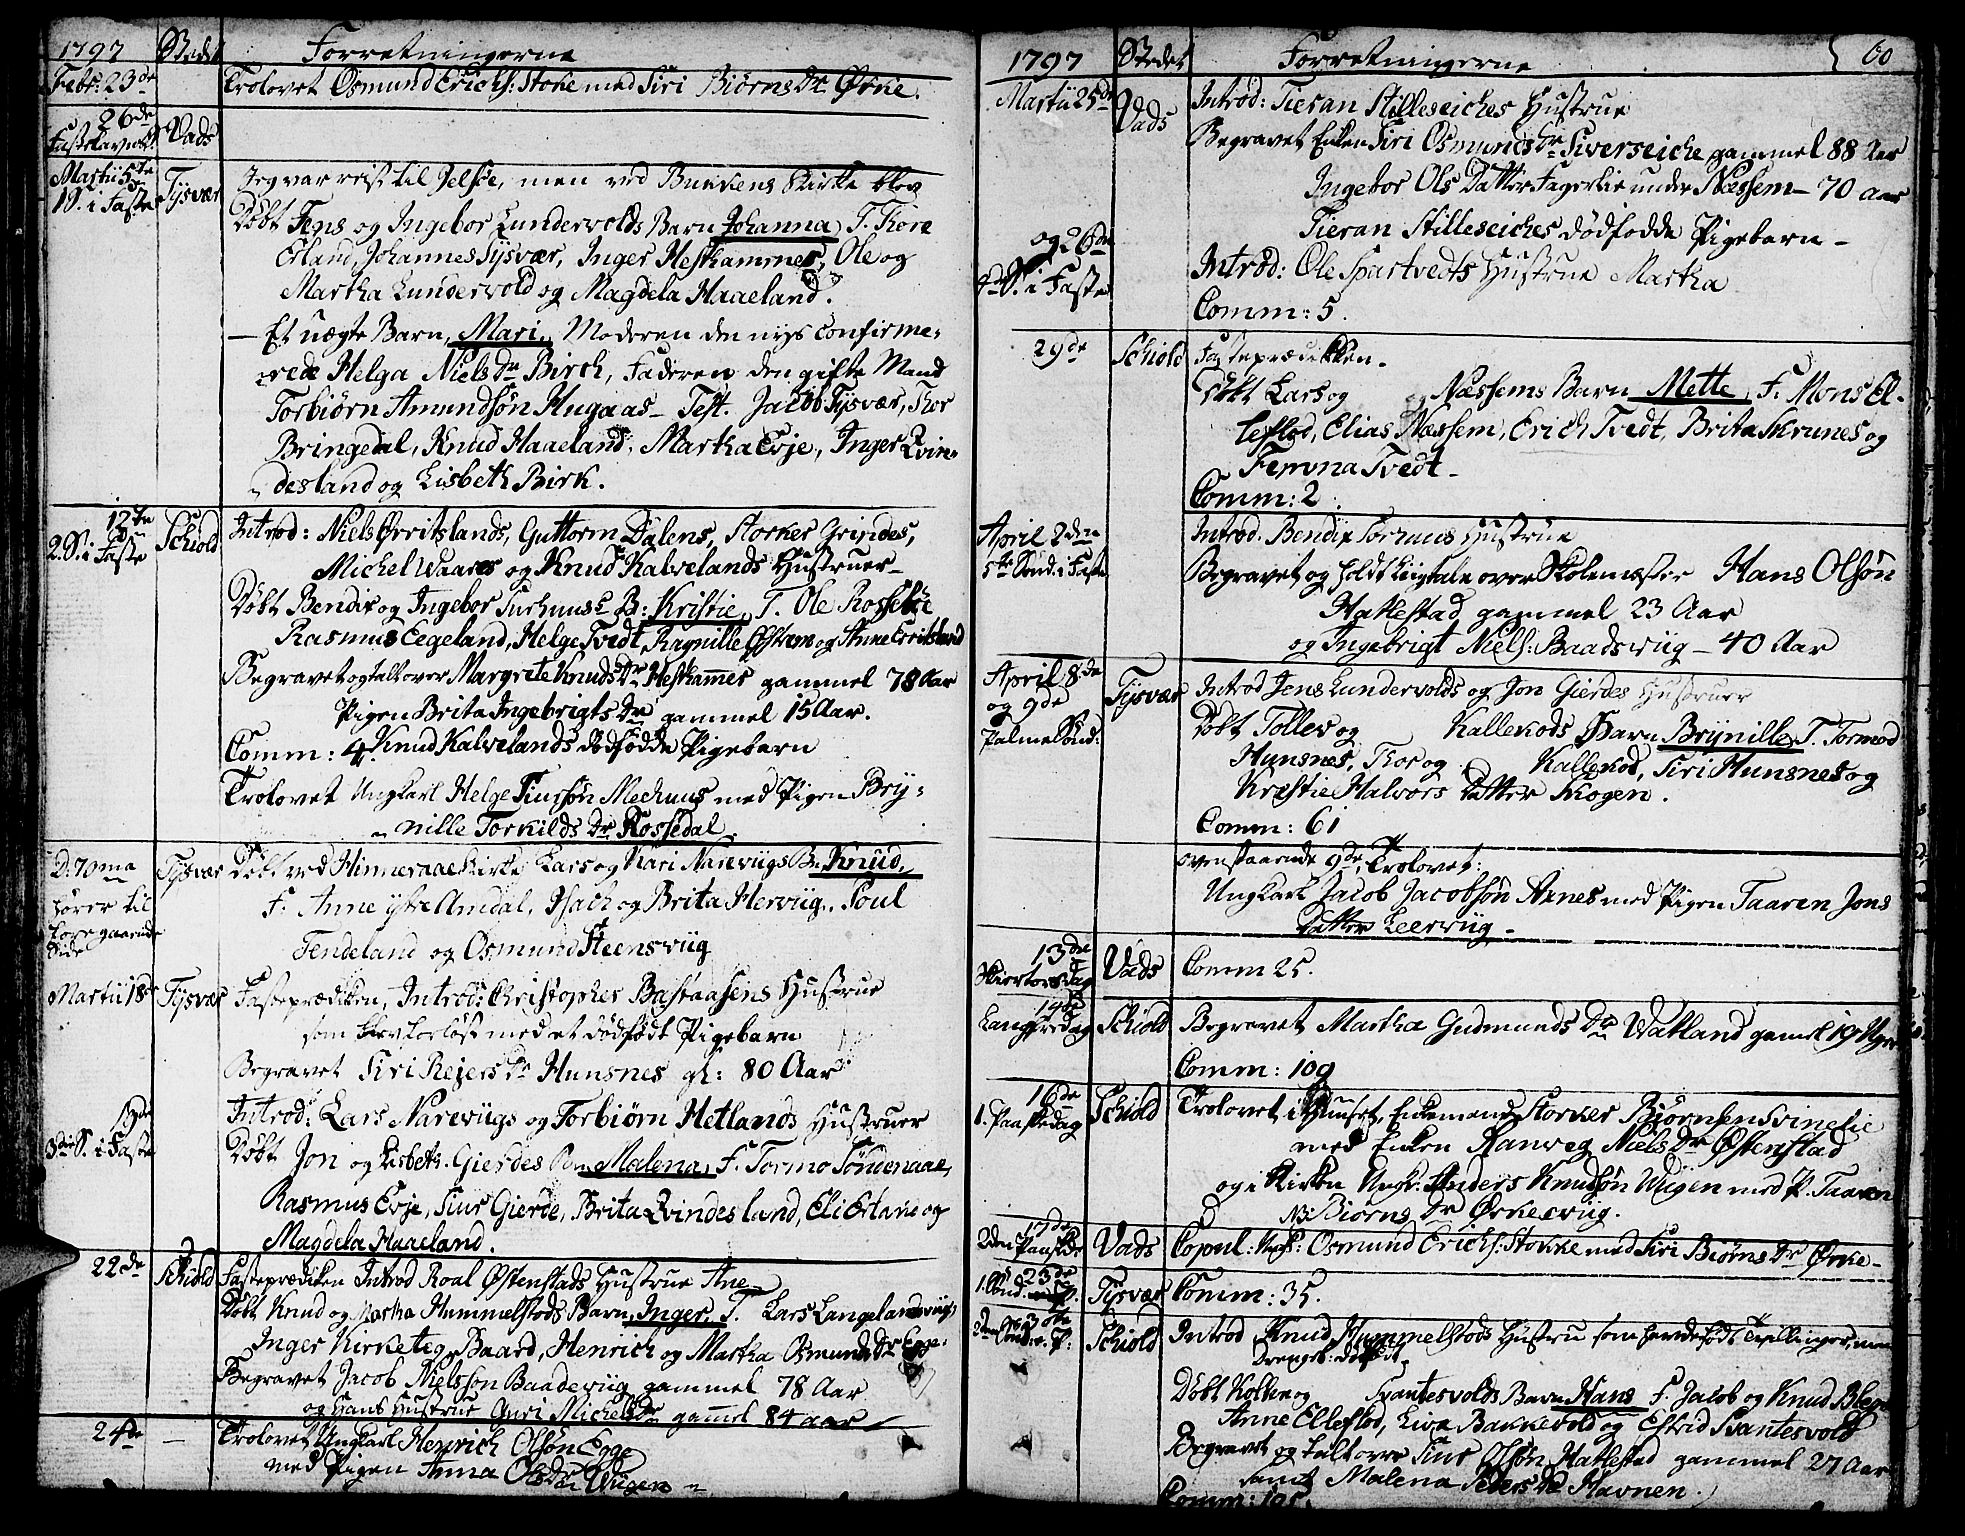 1797 Stedet Forretningerne
Febr: 23de Trolovet Osmund Erichs: Stoke med Siri Biørns Dr Ørke.
26de
Fastelavns S. Vads
Martii 5te Tysvær Jeg var reist til Jelsøe, men ved Bukkens Kirke blev
1 S. i Faste Døbt Jens og Ingebor Lundervolds Barn Johanna, T. Thore
Erland, Johannes Tysvær, Inger Heskammes, Ole og
Martha Lundervold og Magdela Haaeland.
— Et uægte Barn, Mari, Moderen den nys confirme-
rede Helga Niels Dr Birch, Faderen den gifte Mand
Torbiørn Amundsøn Hugaas - Test. Jacob Tysvær, Thor
Bringedal, Knud Haaeland, Martha Evje, Inger Qvin-
desland og Lisbeth Birk.
12te Schiold Introd: Niels Ørritslands, Guttorm Dalens, Storker Grindes,
2. S. i Faste Michel Waares og Knud Kalvelands Hustruer -
Døbt Bendix og Ingebor B: Kristie, T. Ole Rossebøe
Rasmus Eegeland, Helge Tvedt, Ragnille Østam og Anne Erritsland
Begravet og talt over Margrete Knuds Dr Heskames gammel 78 Aar
Pigen Brita Ingebrigts Dr gammel 15 Aar.
Comm: 4. Knud Kalvelands dødfødde Pigebarn
Trolovet Ungkarl Helge Siursøn Mechuus med Pigen Bry-
nille Torkilds Dr Rossedal.
D: 70ma Tysvær Døbt ved Hinneraae Kirke Lars og Kari Narevigs B. Knud,
hører til F. Anne ystre Amdal, Isach og Brita Hervig, Poul
foregaaende Tendeland og Osmund Steensvig
Side
Martii 18de Tysvær Fasteprædiken, Introd: Christopher Bastaasens Hustrue
som blev forløst med et dødfødt Pigebarn
Begravet Siri Rejers Dr Hunsnes gl: 80 Aar
19de Introd: Lars Narevigs og Torbiørn Hetlands Hustruer
3die S. i Faste Døbt Jon og Lisbeth Gierdes Barn Malena, F. Tormo Søndenaae,
Rasmus Evje, Siur Gierde, Brita Qvindesland, Eli Erland og
Magdela Haaeland.
22de Schiold Fasteprædiken Introd Roal Østenstads Hustrue Ane -
Døbt Knud og Martha Hummelstods Barn, Inger, T. Lars Langelandsviig,
Inger Kirketeg, Baard, Henrich og Martha Osmunds Dr Egge.
Begravet Jacob Nielssøn Baadeviig gammel 78 Aar
og hans Hustrue Guri Michels Dr gammel 84 aar
24de — Trolovet Ungkarl Henrich Olsøn Egge
med Pigen Anna Ols Dr Wiigen -
1797 Stedet Forretningerne 60
Martii 25de Vads Introd: Tieran Stilleseiches Hustrue
Begravet Enken Siri Osmunds Dr Siverseiche gammel 88 Aar
Ingebor Ols Datter Fagerlie under Næssem - 70 aar
Tieran Stilleseiches dødfødde Pigebarn -
og 26de Introd: Ole Spartvedts Hustrue Martha
4de S. i Faste Comm: 5.
29de Schiold Fasteprædikken.
Døbt Lars og Næssems Barn Mette, F. Mons El-
lefstod, Elias Næssem, Erich Tvedt, Brita Skrunes og
Tvedt -
Comm: 2.
April 2den Introd. Bendix Hustrue
5te Sønd. i Faste Begravet og holdt Liigtale over Skolemester Hans Olsøn
Hattestad gammel 23 Aar
og Ingebrigt Niels: Baadsviig - 40 Aar
April 8de Tysvær Introd Jens Lundervolds og Jon Gierdes Hustruer
og 9de Døbt Tollev og Kallekods Barn Brynille, T. Tormod
Palme Sønd: Hunsnes, Thor og Kallekod, Siri Hunsnes og
Kræstie Halvors Datter Skogen.
Comm: 61
ovenstaaende 9de Trolovet:
Ungkarl Jacob Jacobsøn Axnes med Pigen Taaren Jons
Datter Leerviig -
13de Vads Comm 25.
Skiertorsdag
14de Schiold Begravet Martha Gudmunds Dr Watland gamel 19 Uger
Langfredag Comm: 109
16de Schiold Trolovet i Huuset, Enkemand Storker Biørnsen Svinelie
1. Paaskedag med Enken Ranveg Niels Dr Østenstad
og i Kirken Ungk: Anders Knudsøn Wiigen med P. Taaren
NB: Biørns Dr Ørkesviig.
17de Vads Copul: Ungk: Osmund Erichs: Stokke med Siri Biørns Dr Ørke -
2den Paaskedag
23de Tysvær Comm: 35.
1. Sønd.
30te Schiold Introd Knud Hummelstods Hustru som havde født Tvillinger, men
2den Sønd. e. P: Drengeb: dødfødt.
Døbt Kolben og Svantesvolds Barn Hans F. Jacob og Knud
Anne Ellefstod, Liva Bakkevold og Estrid Svantesvold
Begravet og talt over Siur Olsøn Hattestad gammel 27 Aar
samt Malena Peders Dr Havnen.
Comm: 105.